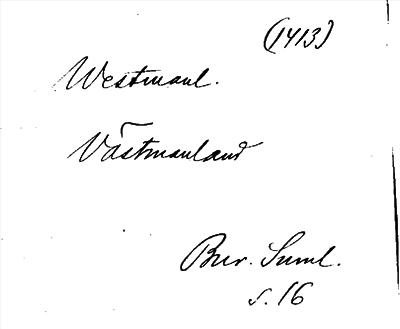 (1413)
Westmanl.
Västmanland
Bur. Suml.
s. 16